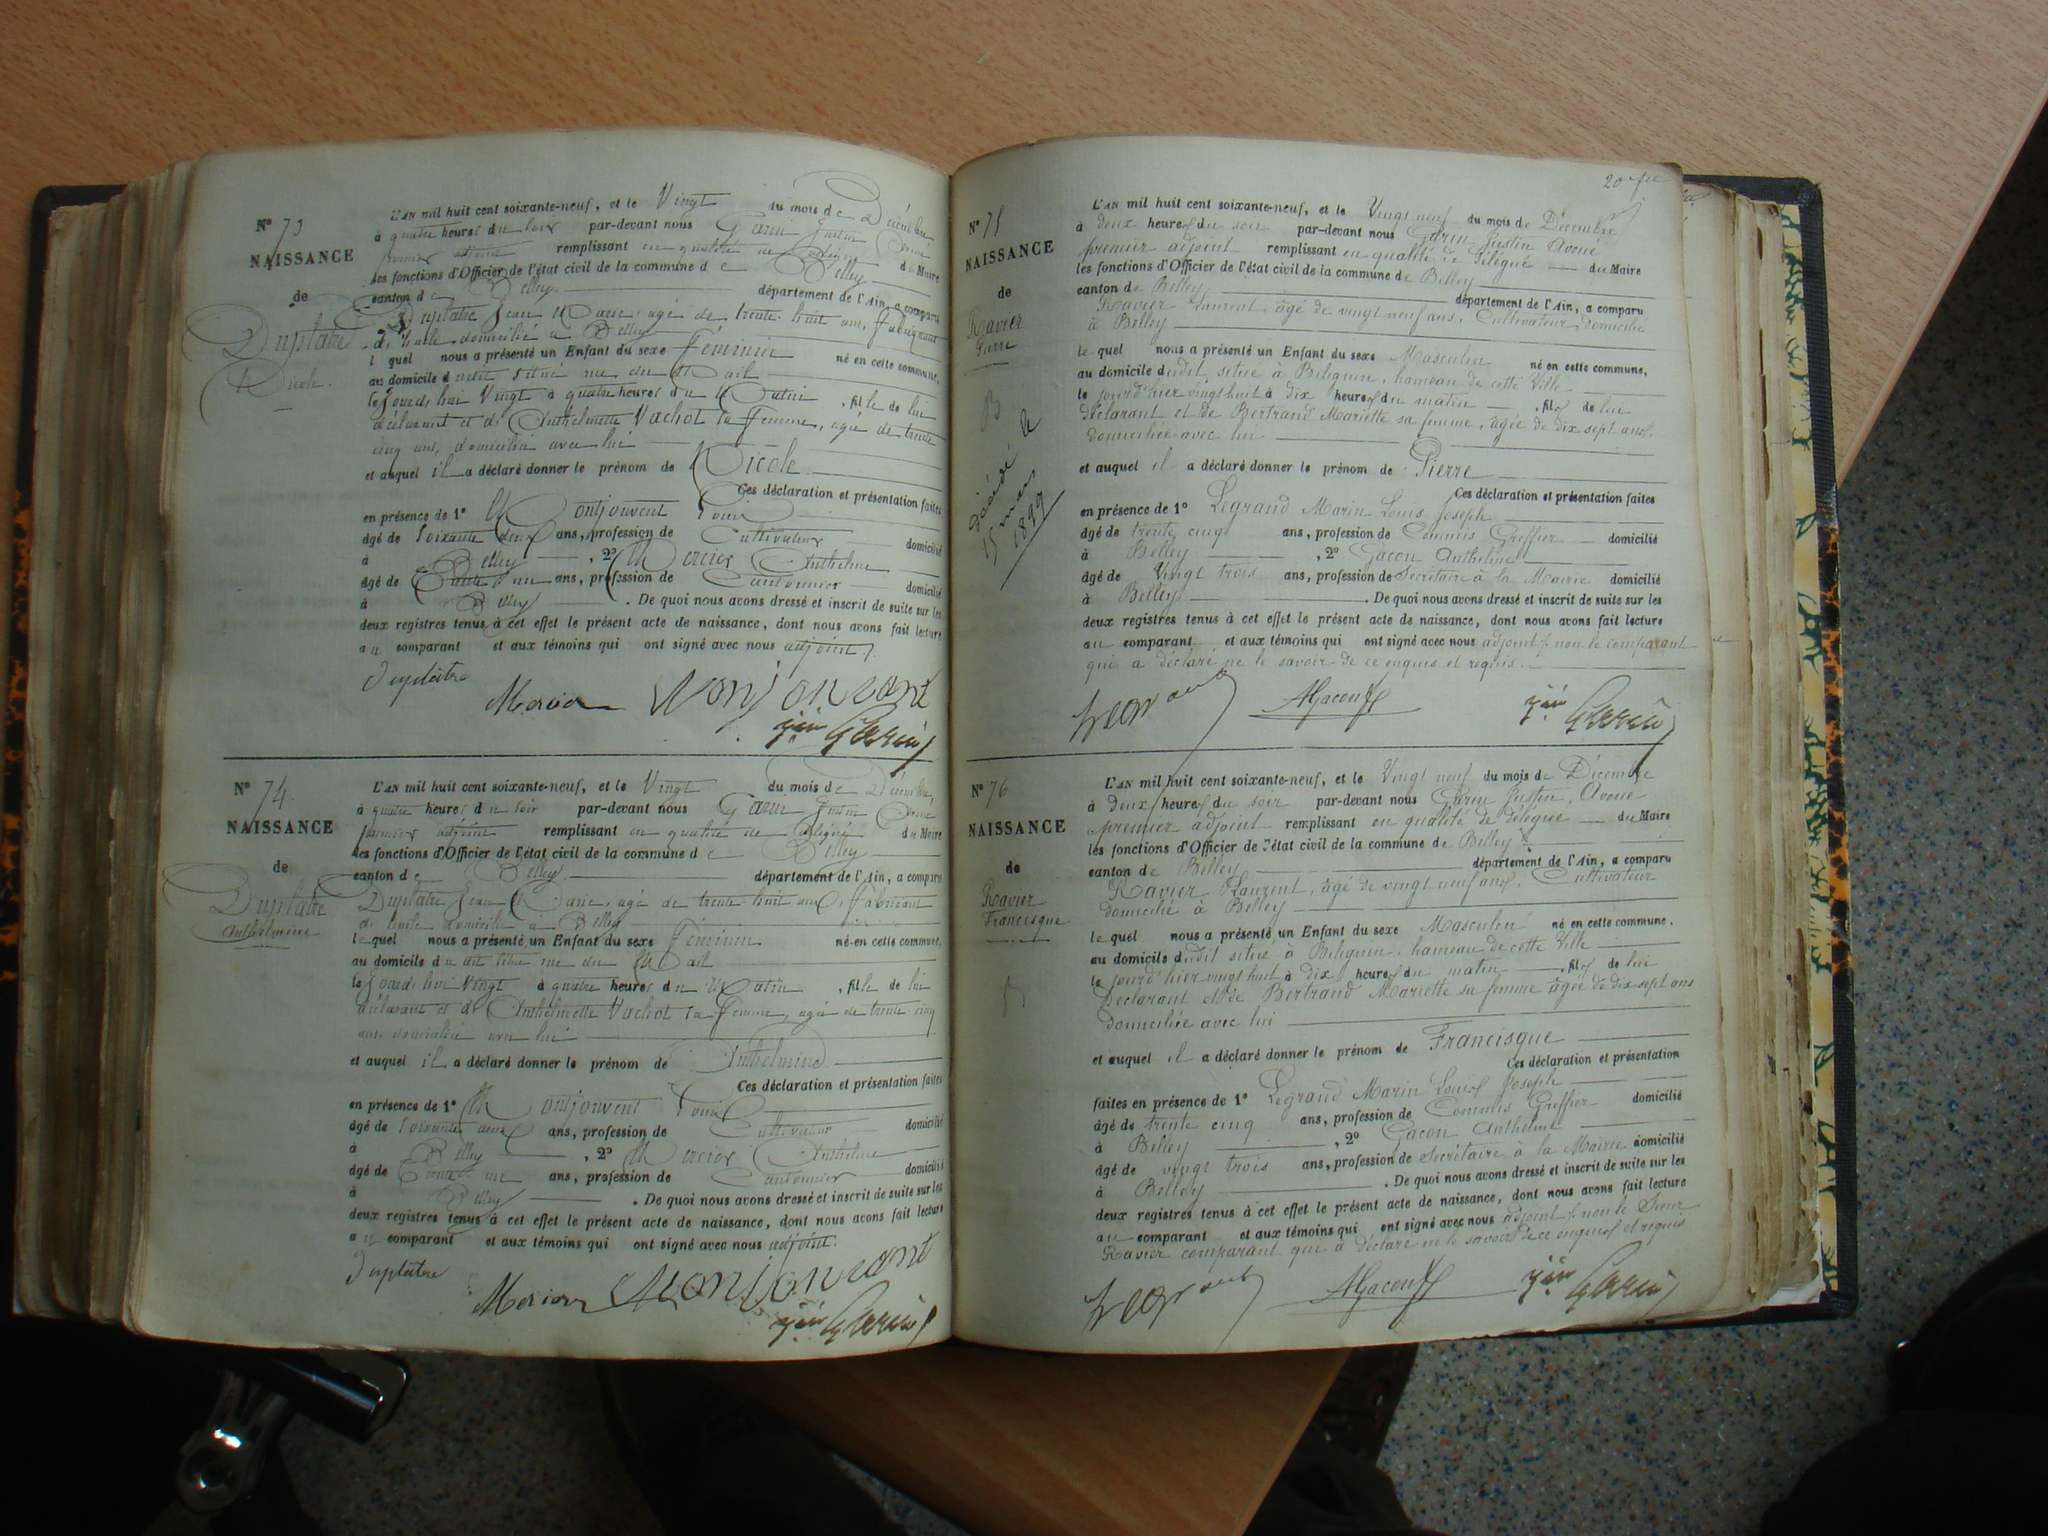 N° 73
NAISSANCE
de
Duplatre
Nicole
L'AN mil huit cent soixante-neuf, et le Vingt du mois de Décembre
à quatre heures du soir par-devant nous Garin Justin Avoué
premier adjoint remplissant en qualité de délégué du Maire
les fonctions d'Officier de l'état civil de la commune de Belley
canton de Belley département de l'Ain, a comparu
Duplatre Jean Marie, âgé de trente huit ans, fabriquant
d'huile domicilié à Belley
lequel nous a présenté un Enfant du sexe féminin né en cette commune,
au domicile dudit situé rue du Mail
le jourd'hui Vingt à quatre heures du Matin, fille de lui
déclarant et de Anthelmette Vachot sa femme, âgée de trente
cinq ans, domiciliée avec lui
et auquel il a déclaré donner le prénom de Nicole
Ces déclaration et présentation faites
en présence de 1° Montjouvent Louis
âgé de soixante deux ans, profession de Cultivateur domicilié
à Belley, 2° Mercier Anthelme
âgé de trente un ans, profession de Cantonnier domicilié
à Belley. De quoi nous avons dressé et inscrit de suite sur les
deux registres tenus à cet effet le présent acte de naissance, dont nous avons fait lecture
au comparant et aux témoins qui ont signé avec nous adjoint.
Duplâtre
Mercier Monjonvant
Jin Garin
N° 74
NAISSANCE
de
Duplatre
Anthelmine
L'AN mil huit cent soixante-neuf, et le Vingt du mois de Décembre,
à quatre heures du soir par-devant nous Garin Justin Avoué
premier adjoint remplissant en qualité de délégué du Maire
les fonctions d'Officier de l'état civil de la commune de Belley
canton de Belley département de l'Ain, a comparu
Duplatre Jean Marie, âgé de trente huit ans, fabricant
d'huile domicilié à Belley
lequel nous a présenté un Enfant du sexe féminin né en cette commune,
au domicile dudit situé rue du Mail
le jourd'hui Vingt à quatre heures du Matin, fille de lui
déclarant et de Anthelmette Vachot sa femme, âgée de trente cinq
ans, domiciliée avec lui
et auquel il a déclaré donner le prénom de Anthelmine
Ces déclaration et présentation faites
en présence de 1° Montjouvent Louis
âgé de soixante deux ans, profession de Cultivateur domicilié
à Belley, 2° Mercier Anthelme
âgé de trente un ans, profession de Cantonnier domicilié
à Belley. De quoi nous avons dressé et inscrit de suite sur les
deux registres tenus à cet effet le présent acte de naissance, dont nous avons fait lecture
au comparant et aux témoins qui ont signé avec nous adjoint.
Duplâtre
Mercier Monjonvant
Jin Garin
N° 75
NAISSANCE
de
Ravier
Pierre
décédé le
15 mars
1899
L'AN mil huit cent soixante-neuf, et le Vingt neuf du mois de Décembre
à deux heures du soir par-devant nous Garin Justin Avoué
premier adjoint remplissant en qualité de délégué du Maire
les fonctions d'Officier de l'état civil de la commune de Belley
canton de Belley département de l'Ain, a comparu
Ravier Laurent, âgé de vingt neuf ans, Cultivateur domicilié
à Belley
lequel nous a présenté un Enfant du sexe Masculin né en cette commune,
au domicile dudit situé à Billignin, hameau de cette Ville
le jourd'hier vingt huit à dix heures du matin, fils de lui
déclarant et de Bertrand Mariette sa femme, âgée de dix sept ans,
domiciliée avec lui
et auquel il a déclaré donner le prénom de Pierre
Ces déclaration et présentation faites
en présence de 1° Legrand Marin Louis Joseph
âgé de trente cinq ans, profession de Commis Greffier domicilié
à Belley, 2° Gacon Anthelme
âgé de Vingt trois ans, profession de Secrétaire à la Mairie domicilié
à Belley. De quoi nous avons dressé et inscrit de suite sur les
deux registres tenus à cet effet le présent acte de naissance, dont nous avons fait lecture
au comparant et aux témoins qui ont signé avec nous adjoint, non le comparant
qui a déclaré ne le savoir de ce enquis et requis.
Legrand AGacon Jin Garin
N° 76
NAISSANCE
de
Ravier
Francisque
L'AN mil huit cent soixante-neuf, et le Vingt neuf du mois de Décembre
à deux heures du soir par-devant nous Garin Justin, Avoué
premier adjoint remplissant en qualité de délégué du Maire
les fonctions d'Officier de l'état civil de la commune de Belley
canton de Belley département de l'Ain, a comparu
Ravier Laurent, âgé de vingt neuf ans, Cultivateur
domicilié à Belley
lequel nous a présenté un Enfant du sexe Masculin né en cette commune.
au domicile dudit situé à Billignin, hameau de cette Ville
le jourd'hier vingt huit à dix heures du matin, fils de lui
Déclarant et de Bertrand Mariette sa femme âgée de dix sept ans
domiciliée avec lui
et auquel il a déclaré donner le prénom de Francisque
Ces déclaration et présentation
faites en présence de 1° Legrand Marin Louis Joseph
âgé de trente cinq ans, profession de Commis Greffier domicilié
à Belley, 2° Gacon Anthelme
âgé de vingt trois ans, profession de Secrétaire à la Mairie domicilié
à Belley. De quoi nous avons dressé et inscrit de suite sur les
deux registres tenus à cet effet le présent acte de naissance, dont nous avons fait lecture
au comparant et aux témoins qui ont signé avec nous adjoint, non le Sieur
Ravier comparant qui a déclaré ne le savoir de ce enquis et requis
Legrand AGacon Jin Garin